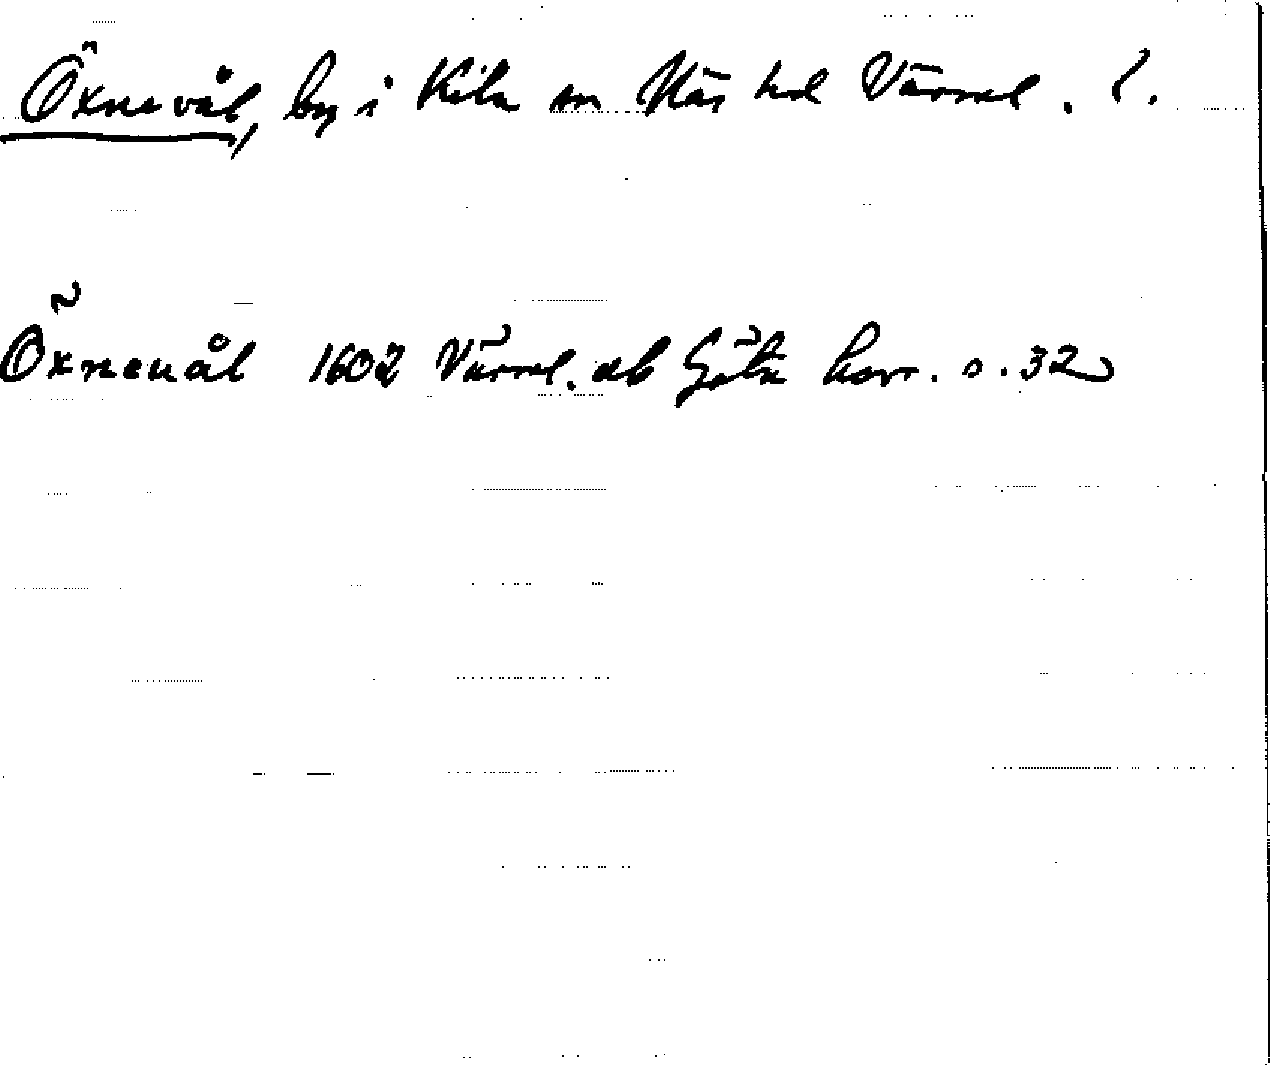 Öxnevål, by i Kila sn Näs hd Värml. l.
Öxneuål 1602 Värml. äb Göta hovr. s. 32